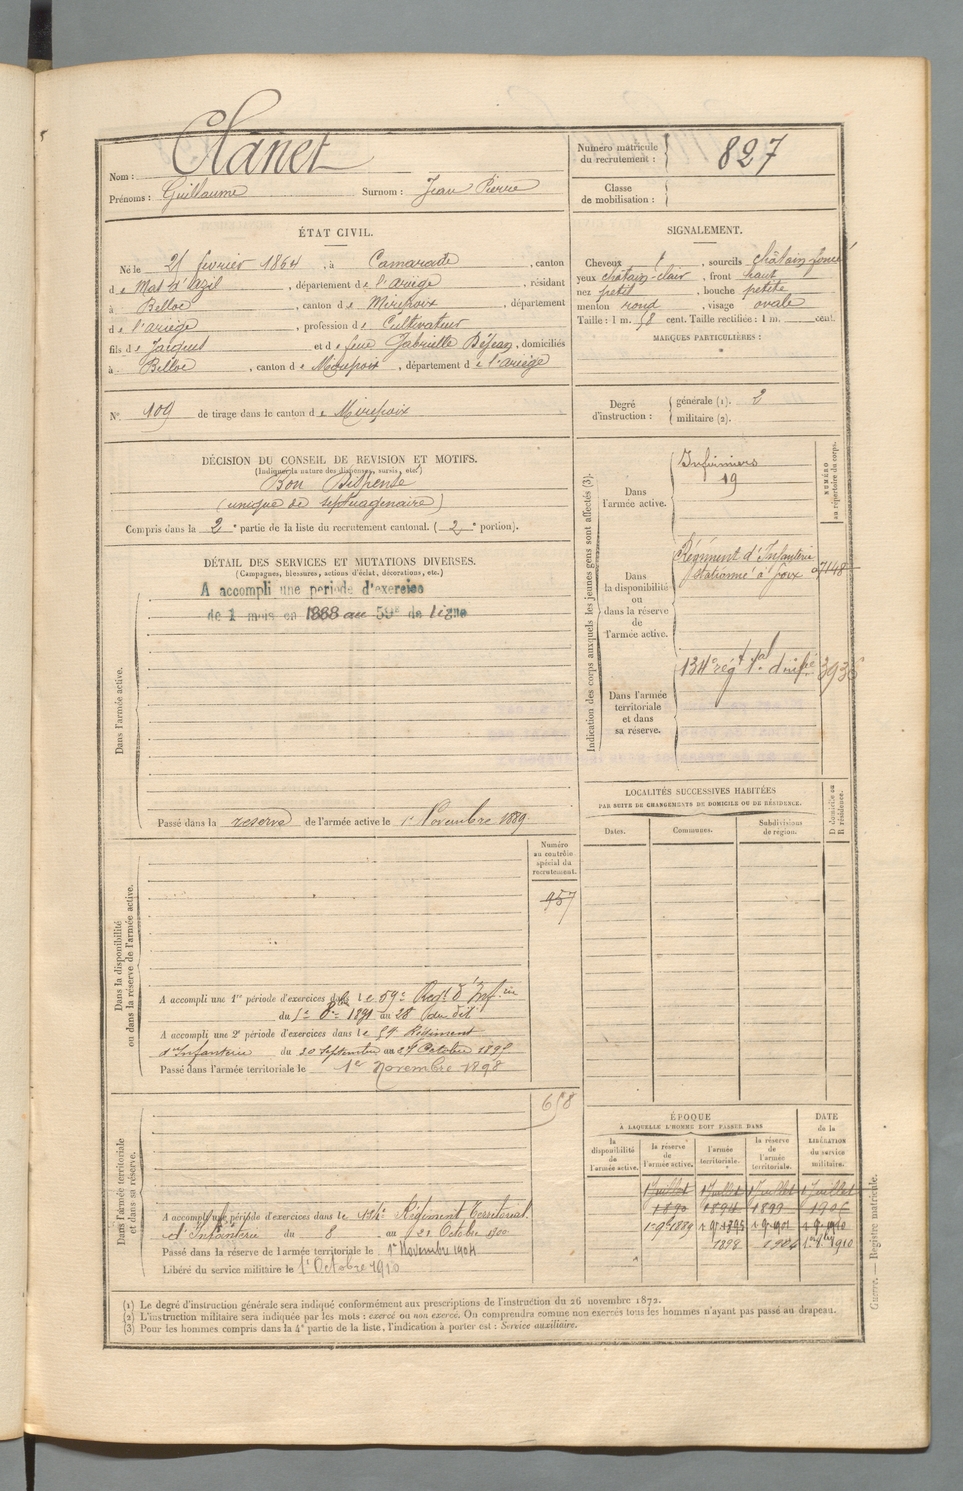 Nom : Clanet
Prénoms : Guillaume Surnom : Jean Pierre
Numéro matricule du recrutement : 827
Classe de mobilisation :
ÉTAT CIVIL.
Né le 21 février 1864, à Camarade, canton
de Mas d'azil, département de l'ariège, résidant
à Belloc, canton de Mirepoix, département
de l'ariège, profession de Cultivateur
fils de Jacques et de feue Gabrielle Déjean, domiciliés
à Belloc, canton de Mirepoix, département de l'ariège
N° 109 de tirage dans le canton de Mirepoix
SIGNALEMENT.
Cheveux , sourcils châtain foncé
yeux châtain-clair, front haut
nez petit, bouche petite
menton rond, visage ovale
Taille : 1 m. 58 cent. Taille rectifiée : 1 m. cent.
MARQUES PARTICULIÈRES :
Degré d'instruction : générale (1). 2
militaire (2).
DÉCISION DU CONSEIL DE REVISION ET MOTIFS.
(Indiquer la nature des dispenses, sursis, etc.)
Bon Dispensé
(unique de septuagénaire)
Compris dans la 2e partie de la liste du recrutement cantonal. (2e portion).
DÉTAIL DES SERVICES ET MUTATIONS DIVERSES.
(Campagnes, blessures, actions d'éclat, décorations, etc.)
Dans l'armée active.
A accompli une période d'exercice
de 1 mois en 1888 au 59e de ligne
Passé dans la réserve de l'armée active le 1er Novembre 1889
Indication des corps auxquels les jeunes gens sont affectés (3).
NUMÉRO au répertoire du corps.
Dans l'armée active.
Infirmiers
19
Dans la disponibilité ou dans la réserve de l'armée active.
Régiment d'Infanterie
stationné à foix
Dans l'armée territoriale et dans sa réserve.
134e régt tal d'infie
LOCALITÉS SUCCESSIVES HABITÉES
PAR SUITE DE CHANGEMENTS DE DOMICILE OU DE RÉSIDENCE.
Dates. Communes. Subdivisions de région. D domicile ou R résidence.
Dans la disponibilité ou dans la réserve de l'armée active.
Numéro au contrôle spécial du recrutement.
957
A accompli une 1re période d'exercices dans le 59e Regt d'Infrie
du 1er 1891 au 28 du dit
A accompli une 2e période d'exercices dans le 59 Régiment
d'Infanterie du 30 septembre au 27 Octobre
Passé dans l'armée territoriale le 1er Novembre 1898
Dans l'armée territoriale et dans sa réserve.
658
A accompli une période d'exercices dans le 134e Régiment Territorial
d'Infanterie du 8 au 21 Octobre 1900
Passé dans la réserve de l'armée territoriale le 1er Novembre 1904
Libéré du service militaire le 1er Octobre 1910
ÉPOQUE
À LAQUELLE L'HOMME DOIT PASSER DANS
la disponibilité de l'armée active. la réserve de l'armée active. l'armée territoriale. la réserve de l'armée territoriale. DATE de la LIBÉRATION du service militaire.
1 Juillet 1 Juillet 1 Juillet 1 Juillet
1890
1898 1904 1910
(1) Le degré d'instruction générale sera indiqué conformément aux prescriptions de l'instruction du 26 novembre 1872.
(2) L'instruction militaire sera indiquée par les mots : exercé ou non exercé. On comprendra comme non exercés tous les hommes n'ayant pas passé au drapeau.
(3) Pour les hommes compris dans la 4e partie de la liste, l'indication à porter est : Service auxiliaire.
Guerre. — Registre matricule.